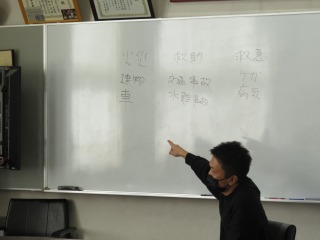 火災 救助 救急
建物 交通事故 ケガ
車 水難事故 病気